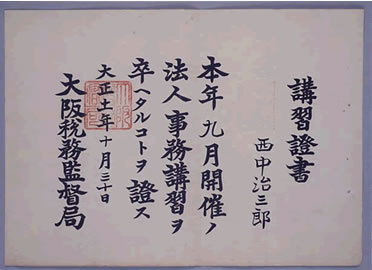 講習證書
西中治三郎
本年九月開催ノ
法人事務講習ヲ
卒ヘタルコトヲ證ス
大正十一年十月三十日
大阪税務監督局